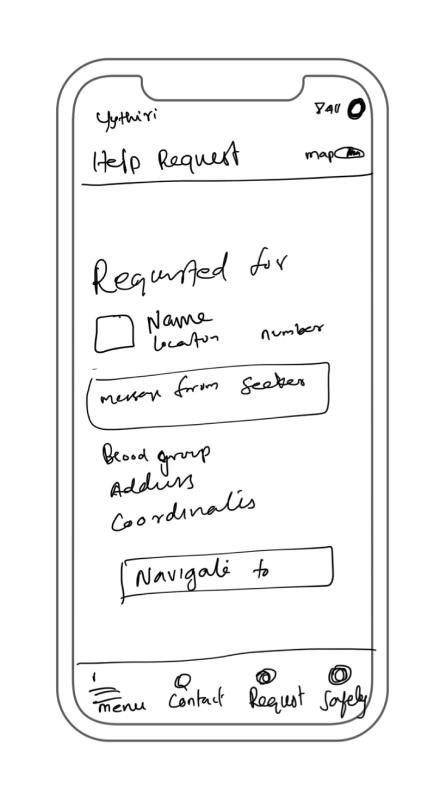 Yythiri
Help Request
map
Requested for
Name
Location number
message from Seeker
Blood group
Address
Coordinates
Navigate to
menu Contact Request Safely